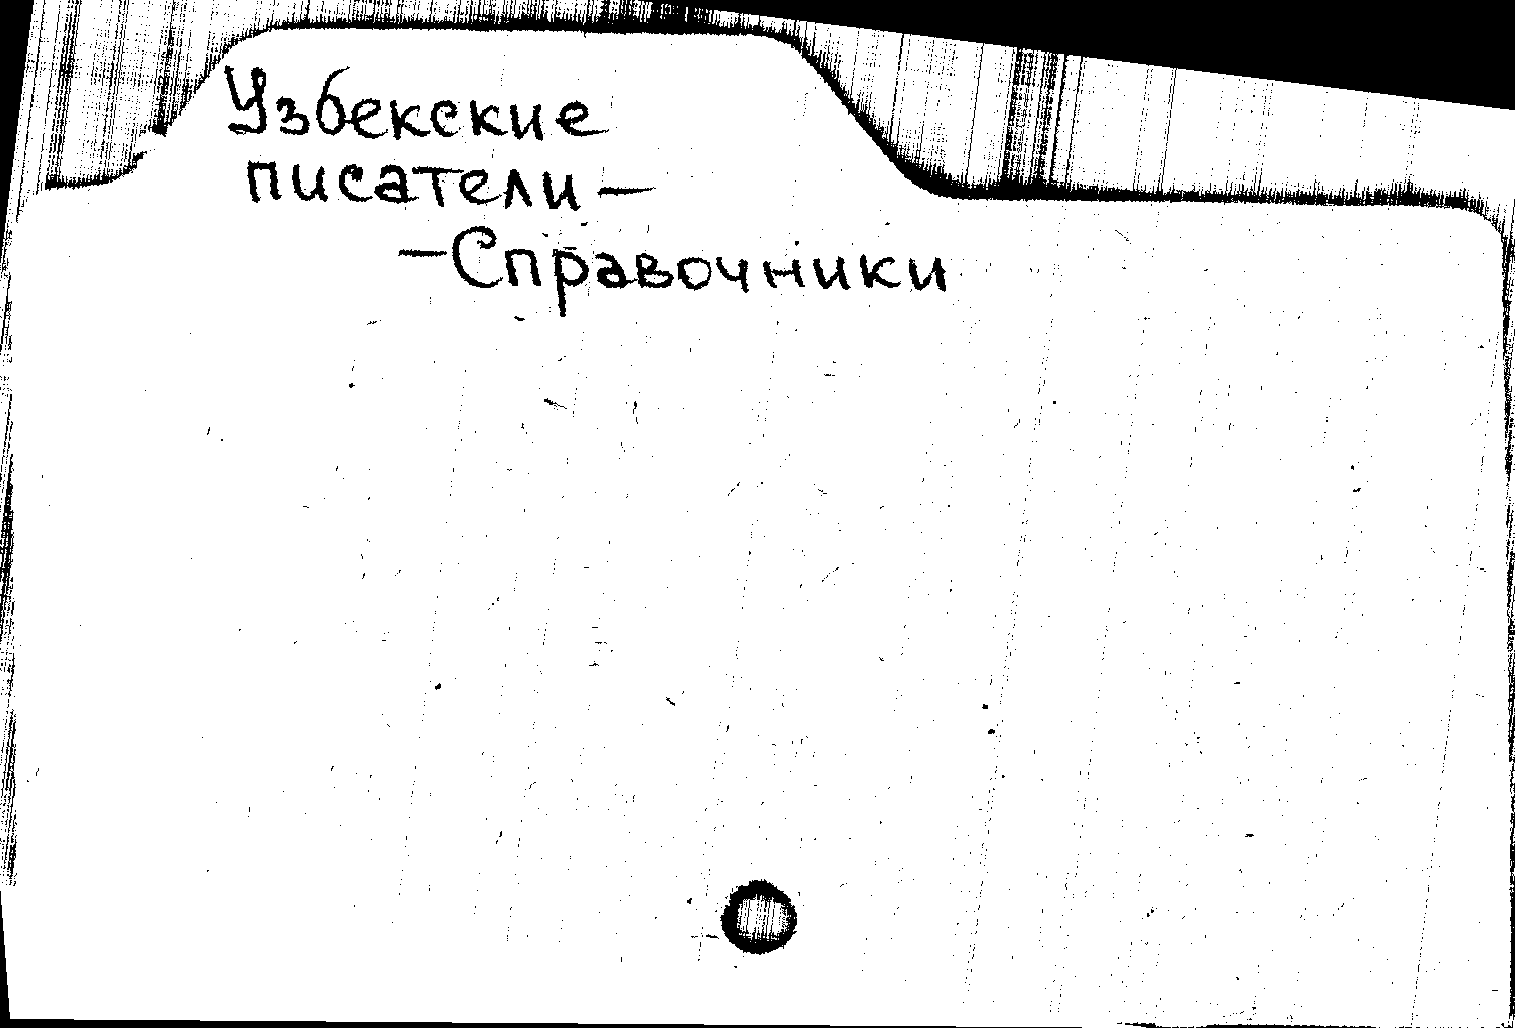 Узбекские
писатели —
— Справочники